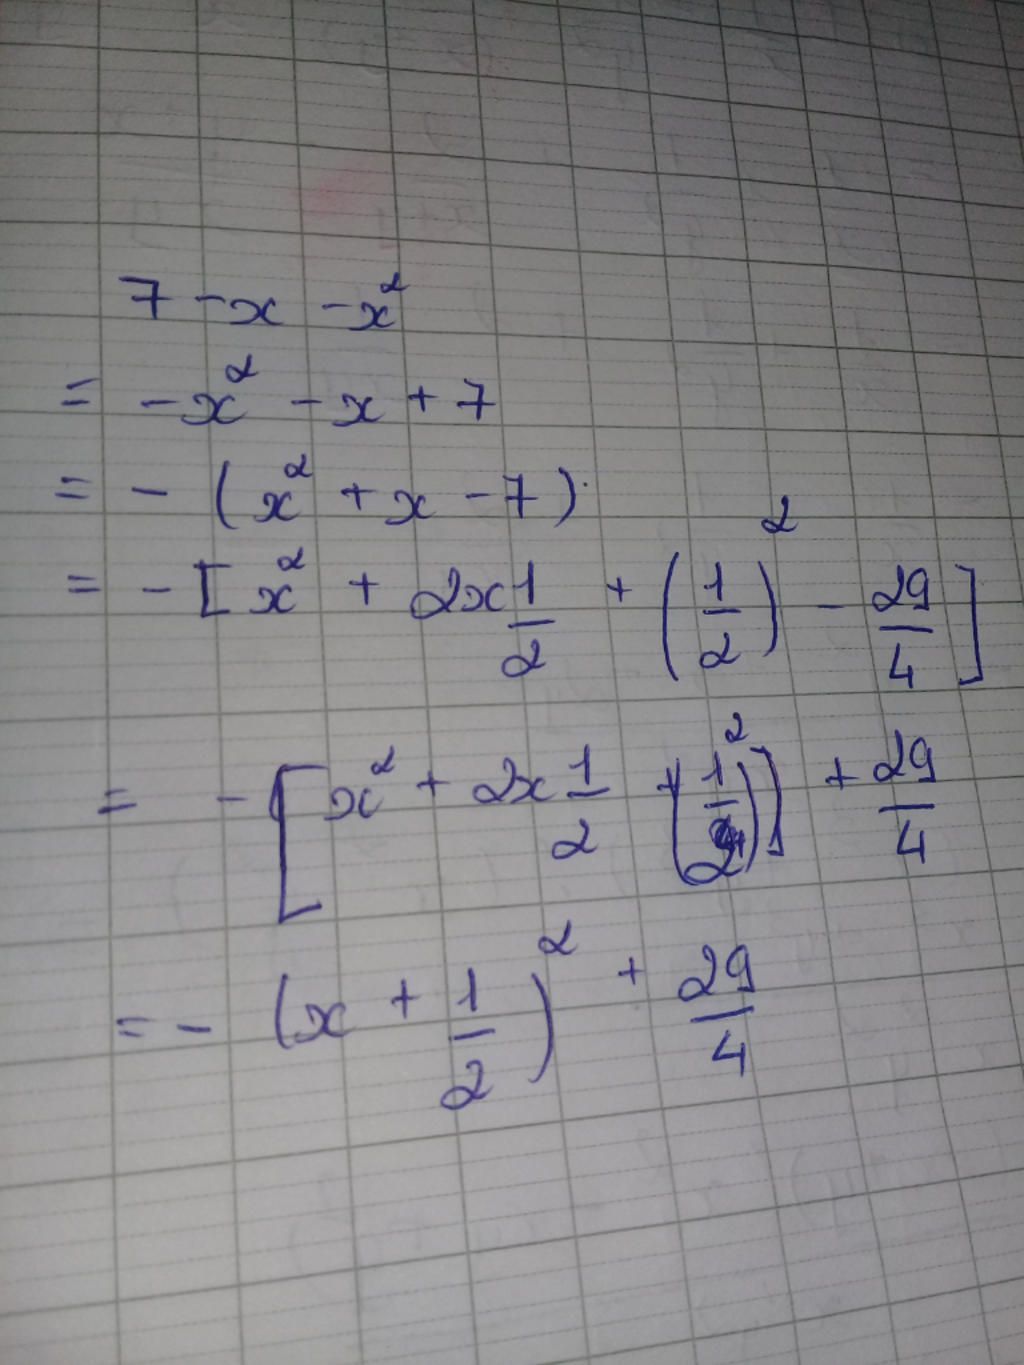 7 - x - x²
= - x² - x + 7
= - (x² + x - 7)
= - [x² + 2x 1/2 + (1/2)² - 29/4]
= - [x² + 2x 1/2 + (1/2)²] + 29/4
= - (x + 1/2)² + 29/4